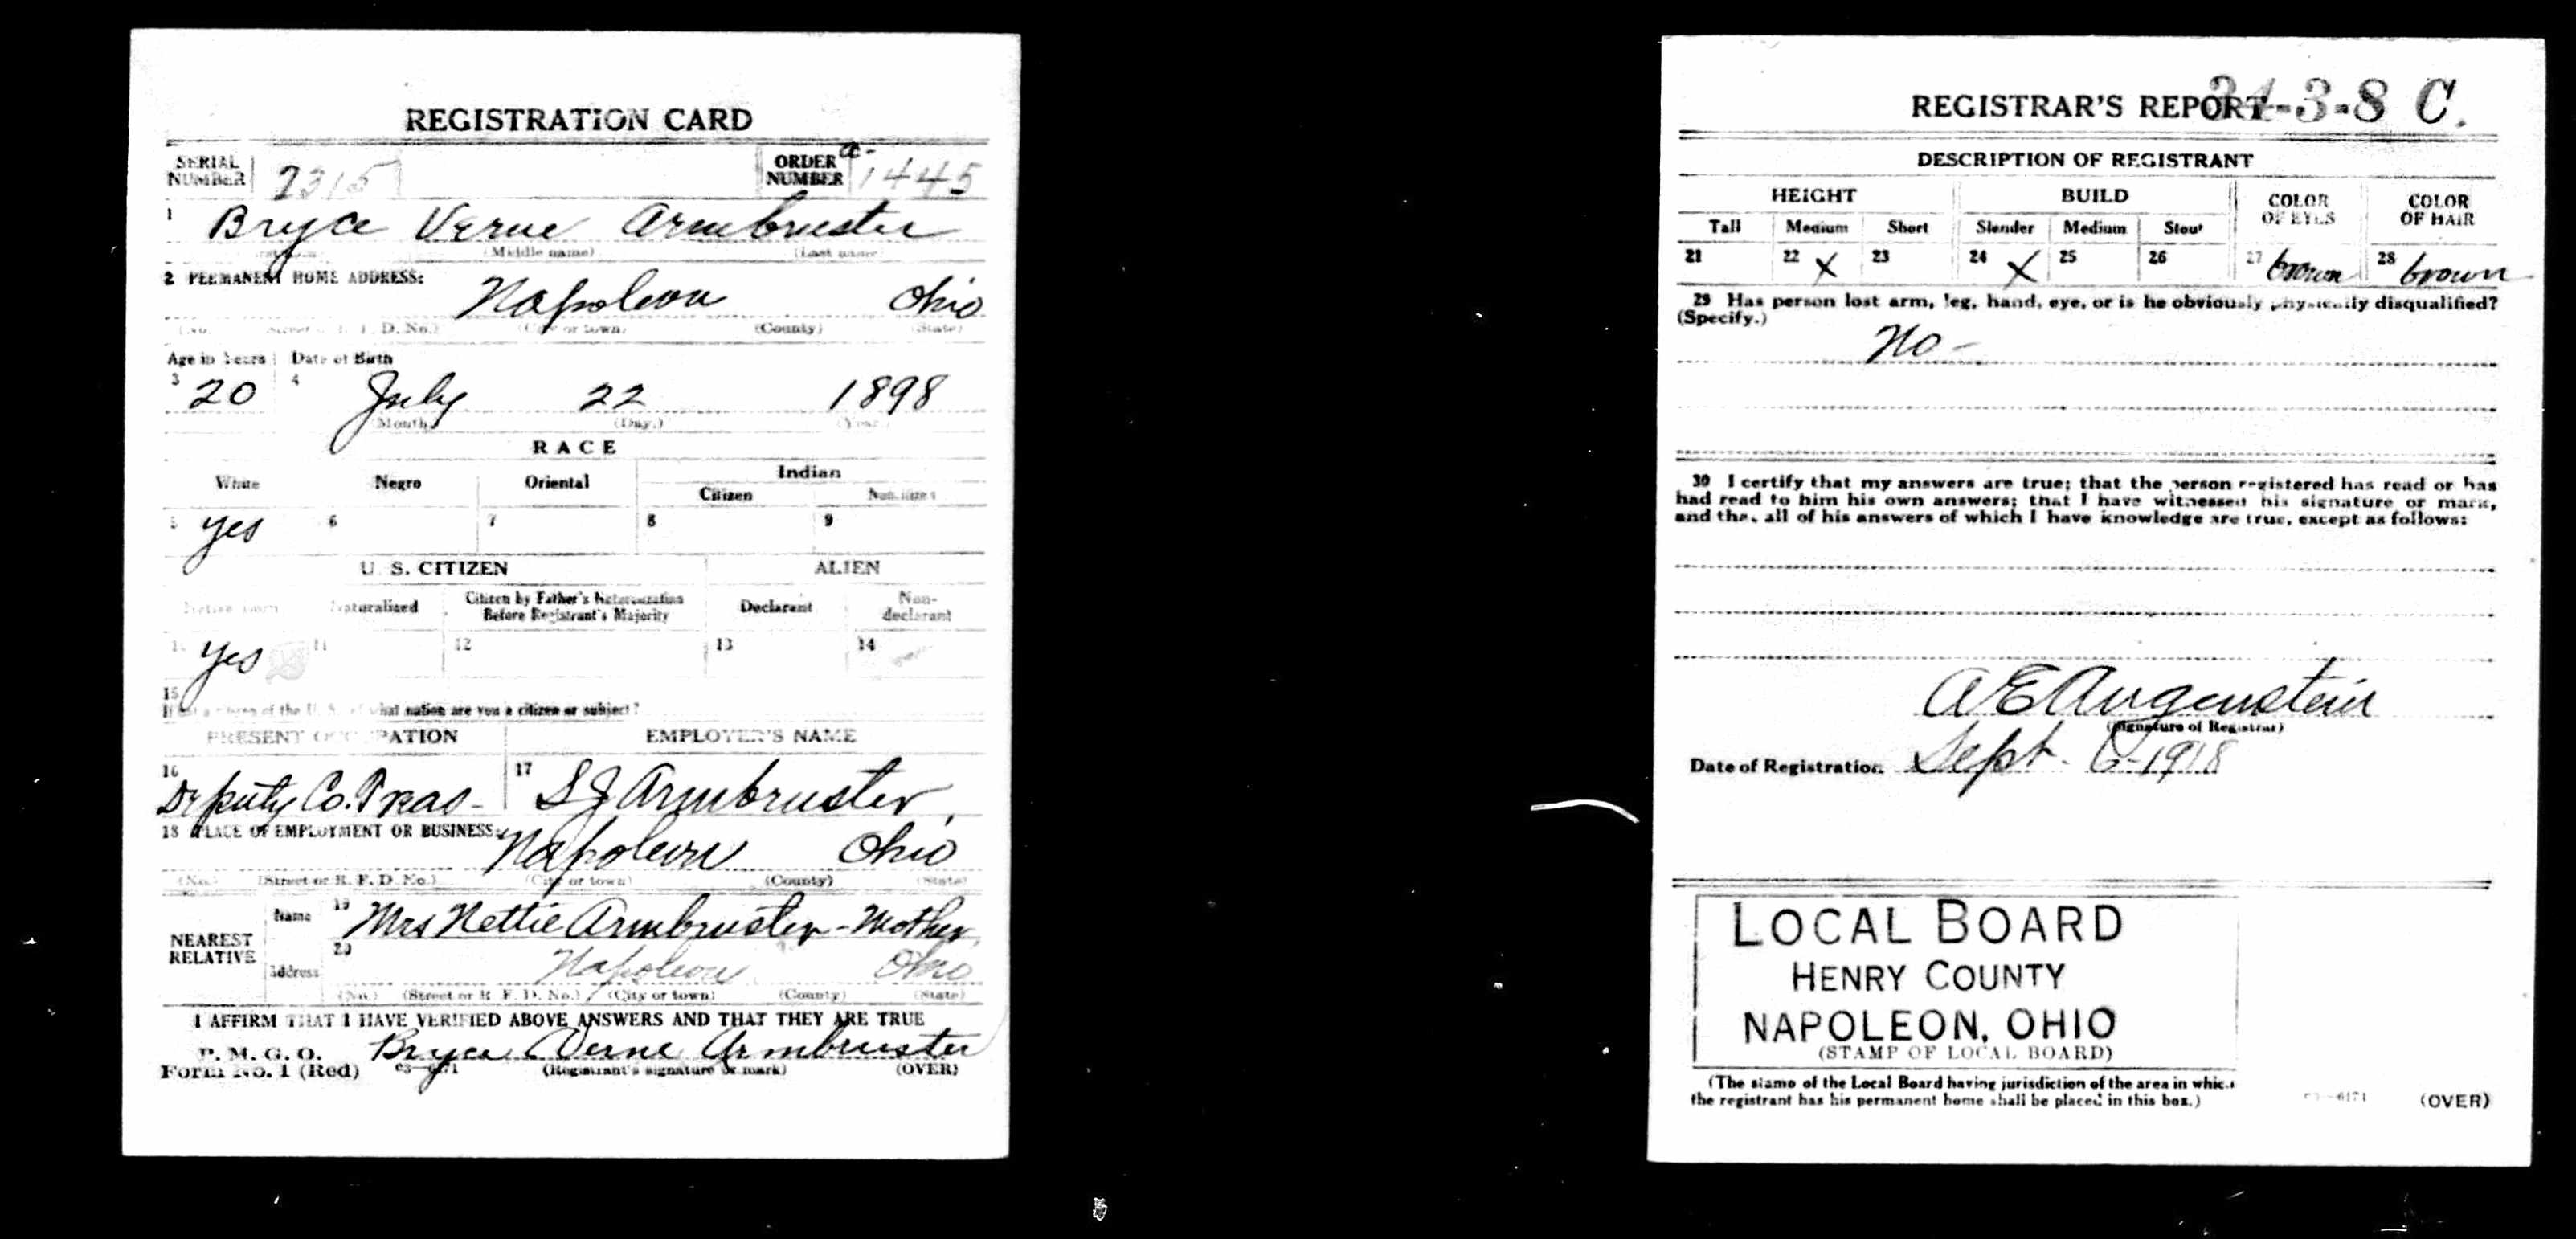 REGISTRATION CARD
SERIAL NUMBER 2315 ORDER NUMBER a- 1445
1 Bryce Verne Armbruster
(Middle name) (Last name)
2 PERMANENT HOME ADDRESS: Napoleon Ohio
(No.) D. No.) (City or town) (County) (State)
Age in Years Date of Birth
3 20 4 July 22 1898
(Month) (Day.) (Year)
RACE
White Negro Oriental Indian
Citizen
5 yes 6 7 8 9
U. S. CITIZEN ALIEN
Native born Naturalized Citizen by Father's Naturalization Before Registrant's Majority Declarant Non-declarant
yes 11 12 13 14
15
If not a citizen of the U. S. of what nation are you a citizen or subject?
PRESENT OCCUPATION EMPLOYER'S NAME
16 Deputy Co. Treas- 17 S J Armbruster
18 PLACE OF EMPLOYMENT OR BUSINESS: Napoleon Ohio
(No.) (Street or R. F. D. No.) (City or town) (County) (State)
NEAREST RELATIVE
Name 19 Mrs Nettie Armbruster - Mother
Address 20 Napoleon Ohio
(No.) (Street or R. F. D. No.) (City or town) (County) (State)
I AFFIRM THAT I HAVE VERIFIED ABOVE ANSWERS AND THAT THEY ARE TRUE
P. M. G. O. Bryce Verne Armbruster
Form No. 1 (Red) 03—6171 (Registrant's signature or mark) (OVER)
REGISTRAR'S REPORT 34-3-8 C.
DESCRIPTION OF REGISTRANT
HEIGHT BUILD COLOR OF EYES COLOR OF HAIR
Tall Medium Short Slender Medium Stout
21 22 X 23 24 X 25 26 27 brown 28 brown
29 Has person lost arm, leg, hand, eye, or is he obviously physically disqualified?
(Specify.)
No -
30 I certify that my answers are true; that the person registered has read or has
had read to him his own answers; that I have witnessed his signature or mark,
and that all of his answers of which I have knowledge are true, except as follows:
A E Augenstein
(Signature of Registrar)
Date of Registration Sept. 6 - 1918
LOCAL BOARD
HENRY COUNTY
NAPOLEON, OHIO
(STAMP OF LOCAL BOARD)
(The stamp of the Local Board having jurisdiction of the area in which
the registrant has his permanent home shall be placed in this box.)
03—6171 (OVER)